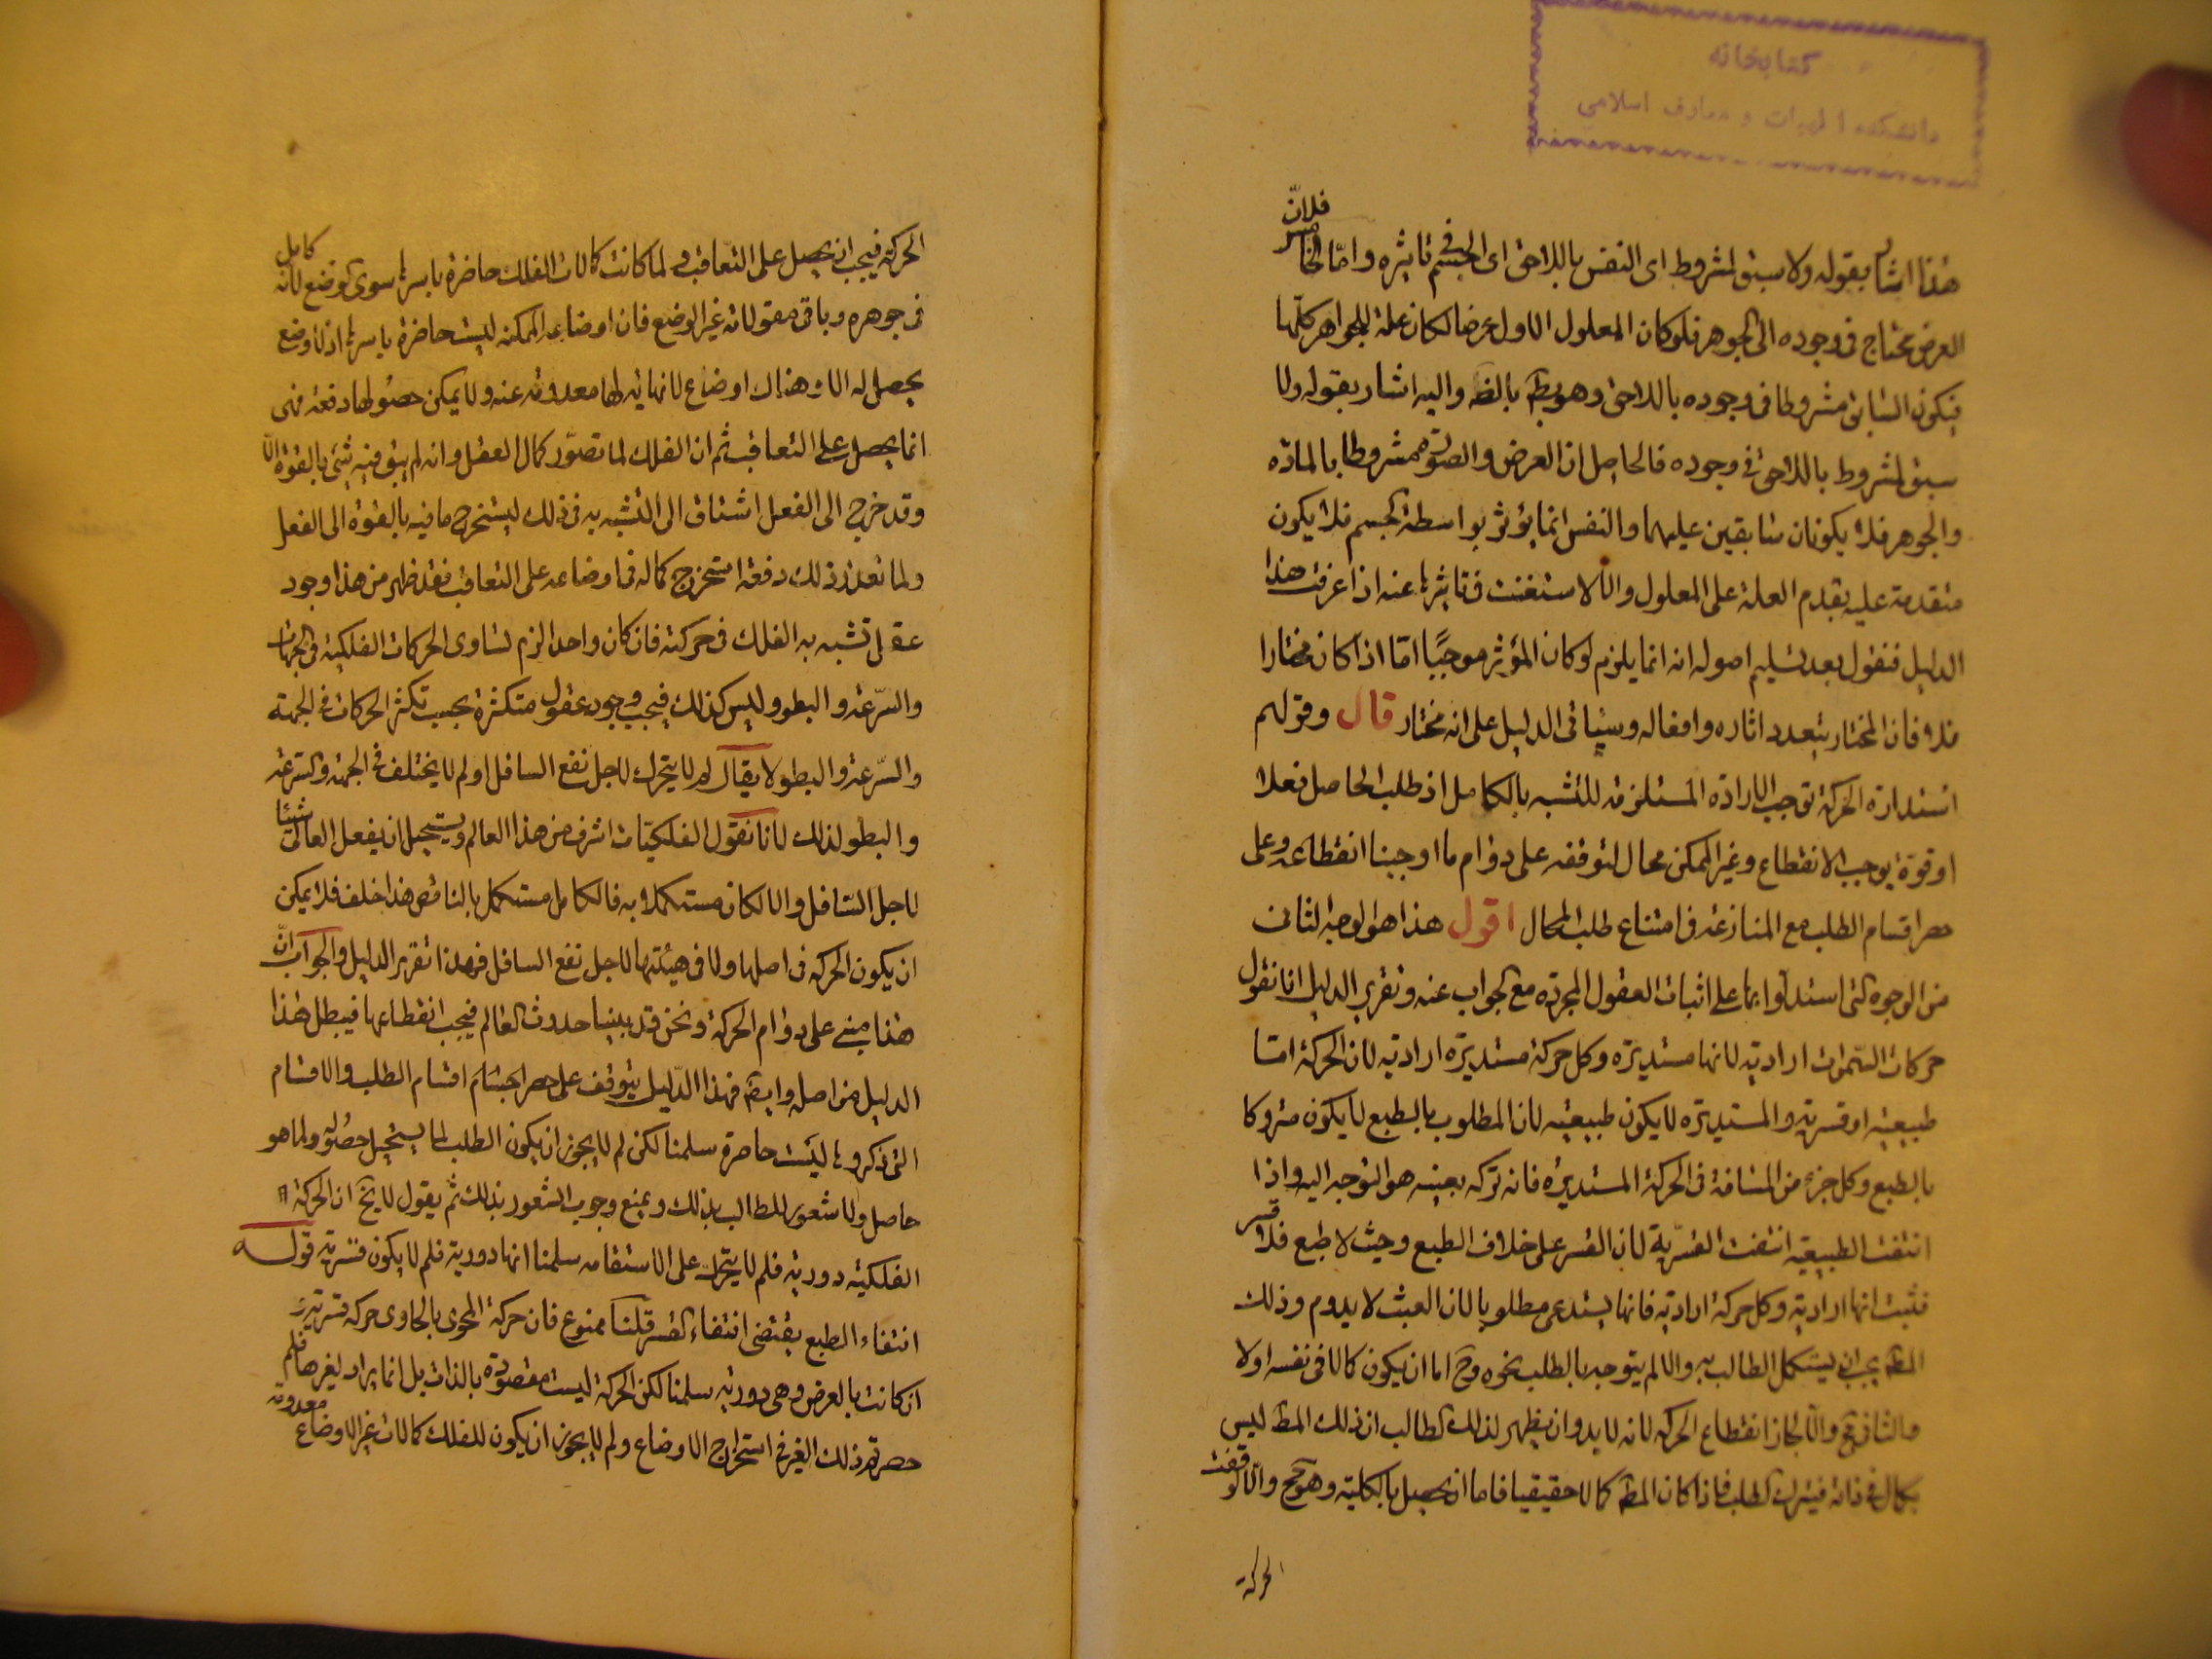 كتابخانه
دانشكده الهيات و معارف اسلامي
فلانّ
هذا اشار بقوله ولا سبق لمشروط اى النفس باللاحق اى الجسم فى تاثيره وامّا الخامس
العرض محتاج فى وجوده الى الجوهر فلو كان المعلول الاول عرضا لكان علة للجواهر كلّها
فيكون السابق مشروطا فى وجوده باللاحق وهو بط بالضه واليه اشار بقوله ولا
سبق لمشروط باللاحق فى وجوده فالحاصل ان العرض والصورة مشروطا بالمادّه
والجوهر فلا يكونان سابقين عليهما والنفس انما يؤثر بواسطة الجسم فلا يكون
متقدمة عليه تقدم العلة على المعلول والا لاستغنت فى تاثيرها عنه اذا عرفت هذا
الدليل فنقول بعد تسليم اصوله انه انما يلزم لو كان المؤثر موجبًا امّا اذا كان مختارا
فلا فان المختار يتعدد اثاره وافعاله وسياتى الدليل على انه مختار قال وقولهم
استدارة الحركة توجب الارادة المستلزمة للتشبه بالكامل اذ طلب الحاصل فعلا
او قوّة يوجب الانقطاع وغير الممكن محال لتوقفه على دوام ما اوجبنا انقطاعه وعلى
حصر اقسام الطلب مع المنازعة فى امتناع طلب المحال اقول هذا هو الوجه الثانى
من الوجوه التى استدلوا بها على اثبات العقول المجردّه مع الجواب عنه وتقرير الدليل انا نقول
حركات السّموات اراديّه لانها مستديرّه وكل حركة مستديرّه اراديّه لان الحركة امّا
طبيعيّه او قسريّه والمستديرّه لا يكون طبيعيّه لان المطلوب بالطبع لا يكون متروكا
بالطبع وكل جزء من المسافة فى الحركة المستديرّه فانه تركه بعينه هو التوجه اليه واذا
انتفت الطبيعيّه انتفت القسرّية لان القسر على خلاف الطبع وحيث لا طبع فلا قسر
فثبت انها اراديّه وكل حركة اراديّه فانها يستدعى مطلوبا لان العبث لا يدوم وذلك
المط يجب ان يستكمل الطالب به والا لم يتوجه بالطلب نحوه وح اما ان يكون كمالا فى نفسه اولا
والثانى مح والّا لجاز انقطاع الحركة لانه لا بد وان يظهر لذلك الطالب ان ذلك المط ليس
بكمال فى ذاته فيترك الطلب فاذا كان المط كمالا حقيقيا فاما ان يحصل بالكليّة وهو مح والّا لوقفت
الحركة
الحركة فيجب ان يحصل على التعاقب ولما كانت كمالات الفلك حاضرة باسرها سوى الوضع لانه كامل
فى جوهره وباقى مقولاته غير الوضع فان اوضاعه الممكنه ليست حاضرة باسرها اذ لا وضع
يحصل له الا وهناك اوضاع لا نهاية لها معدومة عنه ولا يمكن حصولها دفعة فهى
انما يحصل على التعاقب ثم ان الفلك لما تصوّر كمال العقل وانه لم يبق فيه شئ بالقوة الّا
وقد خرج الى الفعل اشتاق الى التشبه به فى ذلك ليستخرج ما فيه بالقوة الى الفعل
ولما تعذر ذلك دفعة استخرج كماله فى اوضاعه على التعاقب فقد ظهر من هذا وجود
عقل تشبه به الفلك فى حركته فان كان واحدا لزم تساوى الحركات الفلكيّة فى الجهات
والسّرعة والبطو وليس كذلك فيجب وجود عقول متكثرة بحسب تكثر الحركات فى الجهة
والسّرعة والبطو لا يقال لم لا يتحرك لاجل نفع السافل او لم لا يختلف فى الجهة والسرعة
والبطو لذلك لانا نقول الفلكيّات اشرف من هذا العالم ويستحيل ان يفعل العالى شيئا
لاجل السّافل والا لكان مستكملا به فالكامل مستكمل بالناقص هذا خلف فلا يمكن
ان يكون الحركة فى اصلها ولا فى هيئتها لاجل نفع السافل فهذا تقرير الدليل والجواب انّ
هذا مبنى على دوام الحركة ونحن قد بينا حدوث العالم فيجب انقطاعها فيبطل هذا
الدليل من اصله وايضا فهذا الدّليل يتوقف على حصر اقسام الطلب والاقسام
التى ذكروها ليست حاصرة سلمنا لكن لم لا يجوز ان يكون الطلب لما يستحيل حصوله ولما هو
حاصل ولا شعور للطالب بذلك ويمنع وجوب الشعور بذلك ثم يقول لا يخ ان الحركة
الفلكيّه دوريّه فلم لا يتحرك على الاستقامه سلمنا انها دورية فلم لا يكون قسرية قوله
انتفاء الطبع يقتضى انتفاء القسر قلنا ممنوع فان حركة المحوى بالحاوى حركة قسرية
ان كانت بالعرض وهى دوريّه سلمنا لكن الحركة ليست مقصودة بالذات بل انما يراد لغيرها فلم
حصرتم ذلك الغير فى استخراج الاوضاع ولم لا يجوز ان يكون للفلك كمالات غير الاوضاع معدومة